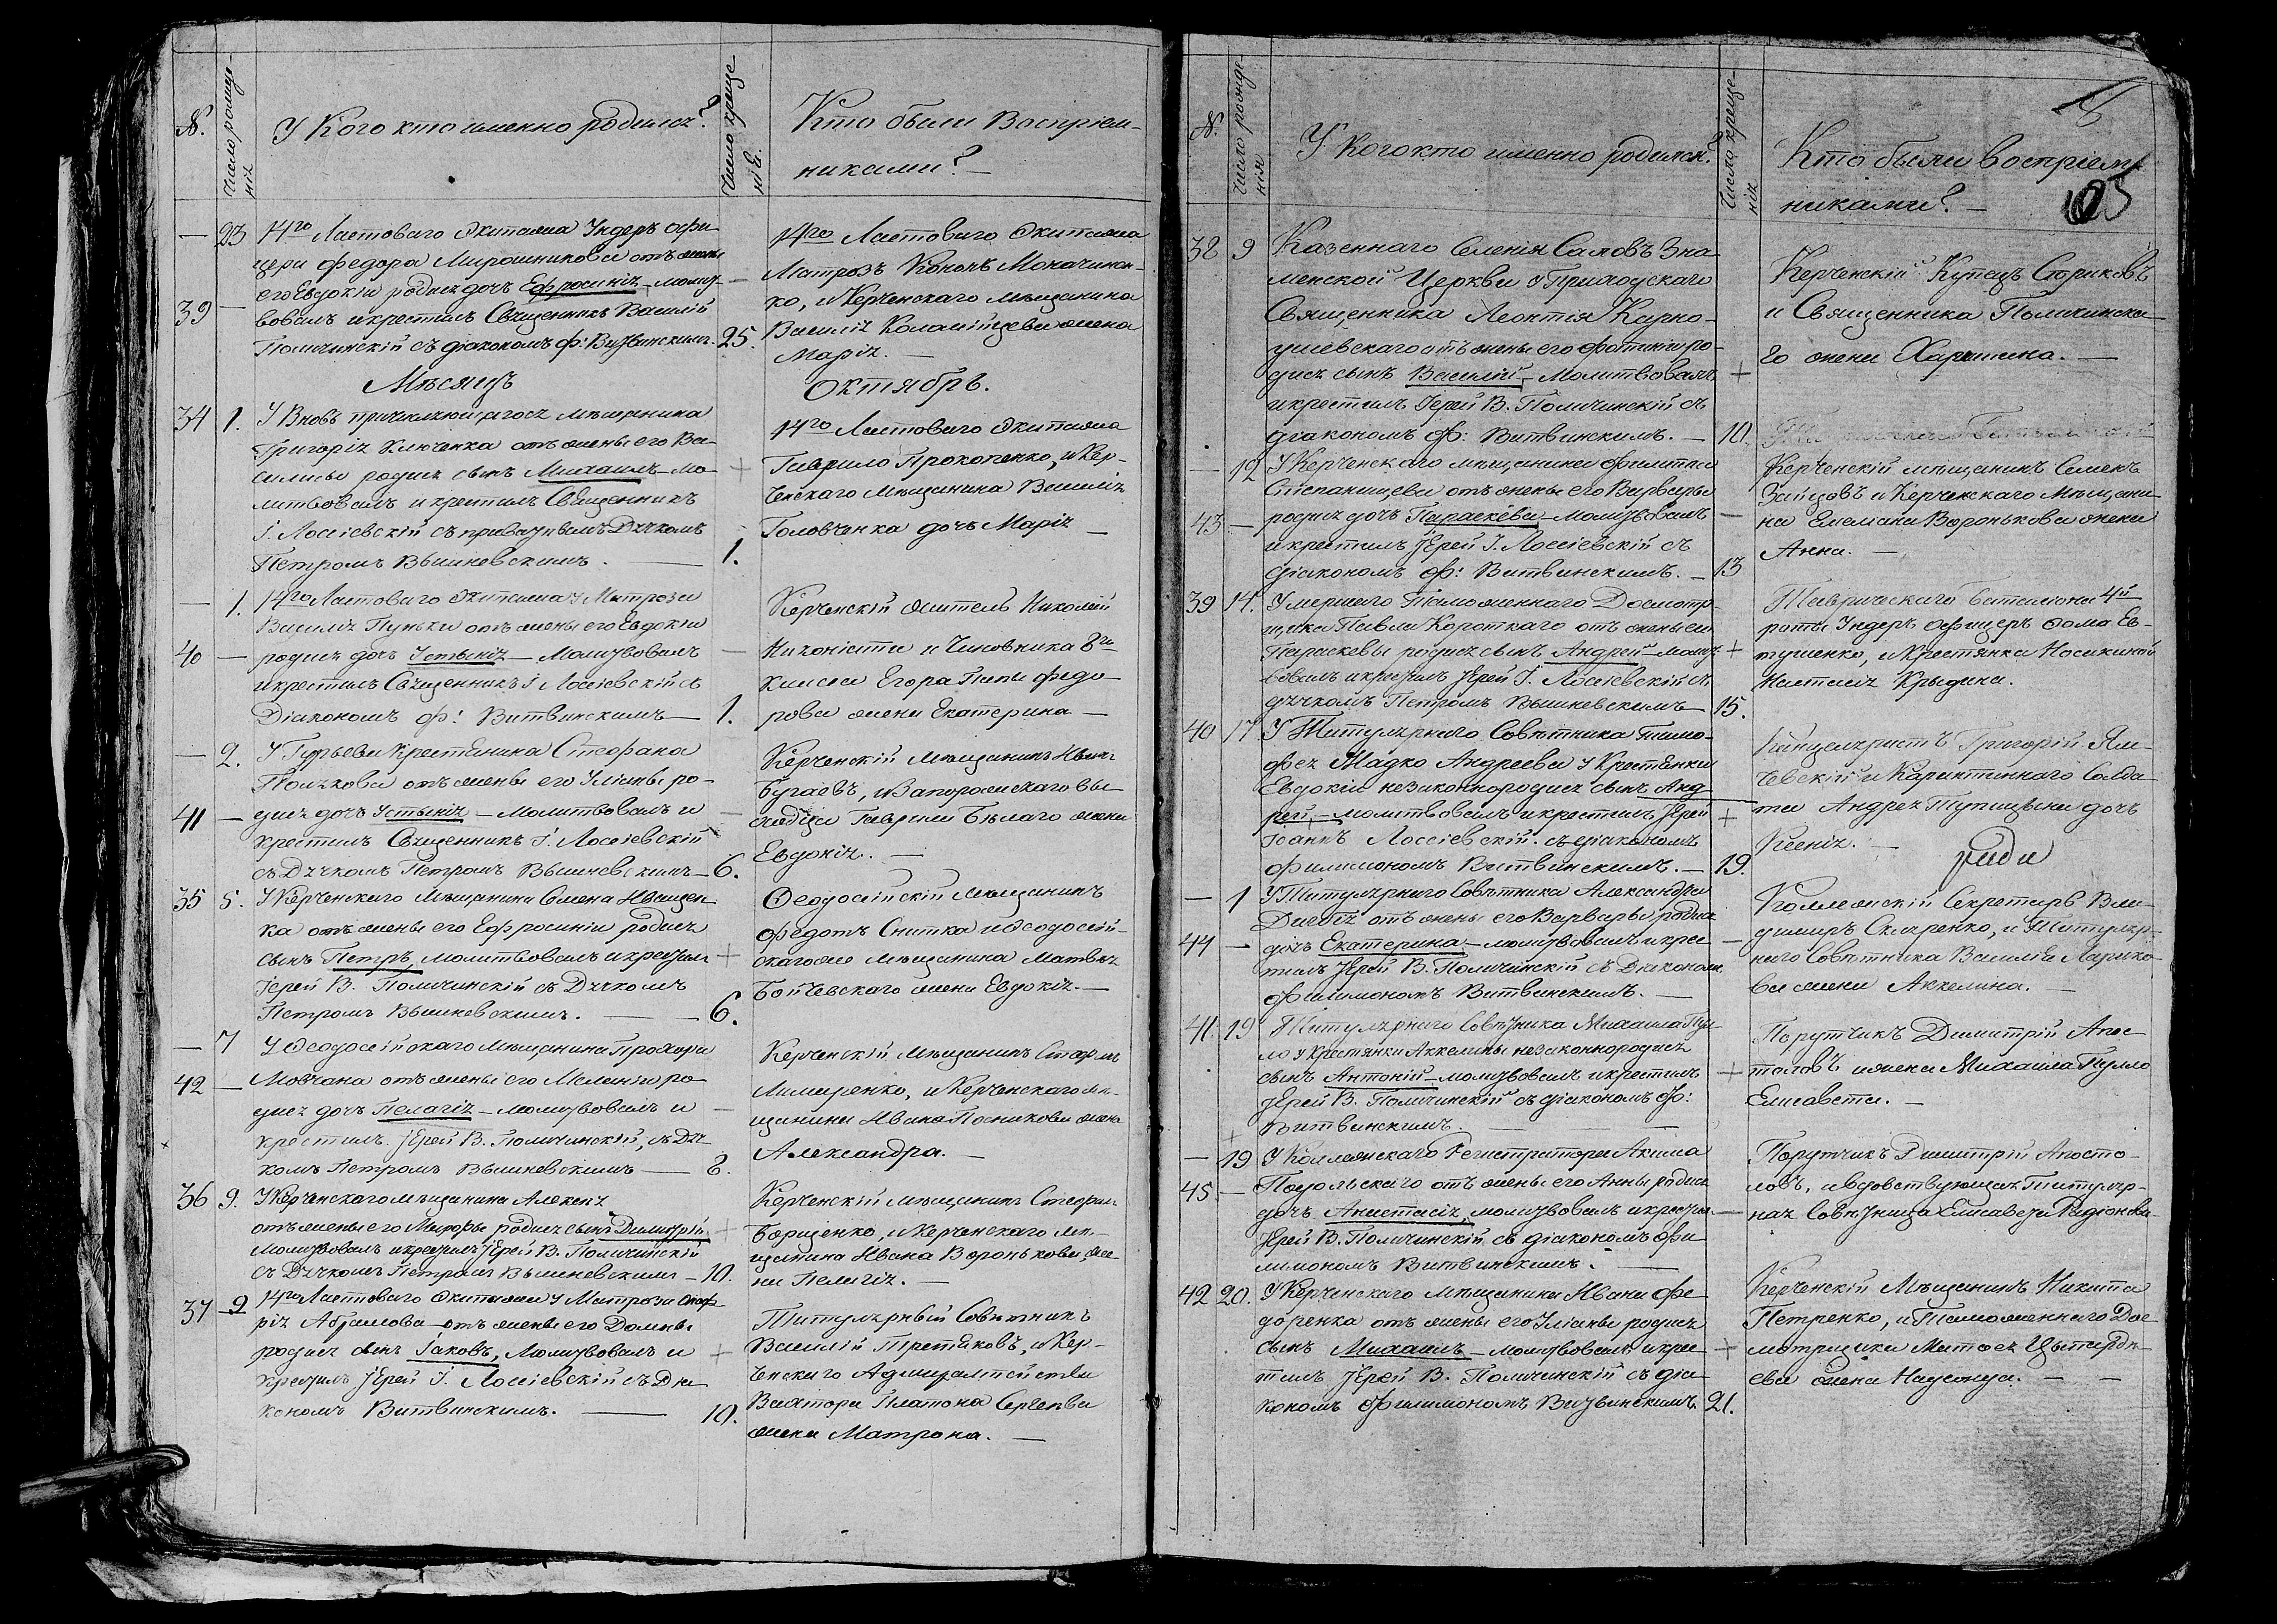 №.
Число рожде-
нія
У Кого кто именно родился?
Число креще-
нія.
Кто были Воспріем-
никами? —
— 23 14го Ластоваго Экипажа Ундеръ офи-
цера Федора Мирошникова отъ жены
его Евдокіи родися дочь Ефросинія — молит-
39 — вовалъ и крестилъ Священникъ Василій
Поличинскій съ діакономъ Ф: Витвинскимъ. 25.
14го Ластоваго Экипажа
Матрозъ Кононъ
ко, и Керченскаго мѣщанина
Василія жена
Марія. —
Мѣсяцъ
Октябрь.
34 1. У Вновь мѣщанина
Григорія Ключенка отъ жены его Ва-
силисы родися сынъ Михаилъ — мо-
литвовалъ и крестилъ Священникъ
І. Лоссіевскій съ Дячкомъ
Петромъ Вышневскимъ. — 1.
14го Ластоваго Экипажа
Гаврило Прокопенко, и Кер-
ченскаго мѣщанина Василія
Головченка дочь Марія —
— 1. 14го Ластоваго Экипажа у Матроза
Василія Пуньки отъ жены его Евдокіи
40 — родися дочь Устинія — Молитвовалъ
и крестилъ Священникъ І Лоссіевскій съ
Діакономъ Ф: Витвинскимъ — 1.
Керченскій житель Николай
и Чиновника 8го
класса Егора Папи Федо-
рова жена Екатерина —
— 2. У Гурьева Крестьянина Стефана
Полякова отъ жены его Уліаны ро-
41 — дися дочь Устинія — Молитвовалъ и
крестилъ Священникъ І. Лоссіевскій
съ Дячкомъ Петромъ Вышневскимъ — 6.
Керченскій Мѣщанинъ Иванъ
Бугаевъ, и Запорожскаго вы-
ходца Гаврила Бѣлаго жена
Евдокія. —
35 5. У Керченскаго Мѣщанина Семена Иващен-
ка отъ жены его Ефросиніи родися
сынъ Петръ, молитвовалъ и крестилъ +
Іерей В. Поличинскій съ Дячкомъ
Петромъ Вышневскимъ. — 6.
Феодосійскій Мѣщанинъ
Федотъ Снитка и Феодосій-
скаго же мѣщанина Матвѣя
Бойчевскаго жена Евдокія. —
— 7 У Феодосійскаго Мѣщанина Прохора
42 — Мовчана отъ жены его Меланіи ро-
дися дочь Пелагія — молитвовалъ и
крестилъ Іерей В. Поличинскій, съ Дяч-
комъ Петромъ Вышневскимъ — 8.
Керченскій Мѣщанинъ Стефанъ
и Керченскаго мѣ-
щанина Ивана Посникова жена
Александра. —
36 9. У Керченскаго мѣщанина Алексѣя
отъ жены его Марфы родися сынъ Димитрій
Молитвовалъ и крестилъ Іерей В. Поличинскій
съ Дячкомъ Петромъ Вышневскимъ — 10.
Керченскій мѣщанинъ Стефанъ
Борщенко, и Керченскаго мѣ-
щанина Ивана Воронькова же-
на Пелагія. —
37 9 14го Ластоваго Экипажа у Матроза
Абрамова отъ жены его Домны
родися сынъ Іаковъ, Молитвовалъ и +
крестилъ Іерей І. Лоссіевскій съ Діа-
кономъ Витвинскимъ. — 10.
Титулярный Совѣтникъ
Василій Третьяковъ, и Кер-
ченскаго Адмиралтейства
Вахтера Платона Сергѣева
жена Матрона. —
№.
Число рожде-
нія
У Кого кто именно родился?
Число креще-
нія
Кто были воспріем-
никами? —
103
38 9 Казеннаго Селенія Саловъ Зна-
менской Церкви у Приходскаго
Священника Леонтія Карно-
ушевскаго отъ жены его Фотиніи ро-
дися сынъ Василій — Молитвовалъ +
и крестилъ Іерей В. Поличинскій съ
діакономъ Ф: Витвинскимъ. — 10.
Керченскій Купецъ Сориковъ
и Священника Поличинска-
го жена Харитина. —
— 12 У Керченскаго мѣщанина Филиппа
Степанищева отъ жены его Варвары
43 — родися дочь Параскева — Молитвовалъ —
и крестилъ Іерей І. Лоссіевскій съ
діакономъ Ф: Витвинскимъ. — 13
Керченскій мѣщанинъ Семенъ
Зайцовъ и Керченскаго Мѣщани-
на Емельяна Воронькова жена
Анна. —
39 14. Умершаго Таможеннаго Досмотр-
щика Павла Короткаго отъ жены его
Параскевы родися сынъ Андрей — молит- +
вовалъ и крестилъ Іерей І. Лоссіевскій съ
дячкомъ Петромъ Вышневскимъ — 15.
Таврическаго баталіона 4й
роты Ундеръ офицеръ Фома Ев-
тушенко, и Крестьянка
Настасія Крыдина.
40 17 У Титулярнаго Совѣтника Тимо-
фея Мадко Андреева у Крестьянки
Евдокіи незаконнородися сынъ Анд-
рей, — молитвовалъ и крестилъ Іерей +
Іоаннъ Лоссіевскій съ діакономъ
Филимономъ Витвинскимъ. — 19.
Канцеляристъ Григорій Яли-
чевскій и Карантиннаго Солда-
та Андрея Тупицына дочь
Ксенія. —
— 1 У Титулярнаго Совѣтника Александра
отъ жены его Варвары родися
44 — дочь Екатерина — молитвовалъ и крес- —
тилъ Іерей В. Поличинскій съ Діакономъ
Филимономъ Витвинскимъ. —
Коллежскій Секретарь Вла-
димиръ Скляренко, и Титуляр-
наго Совѣтника Василія Ларико-
ва жена Аккелина. —
41. 19 Титулярнаго Совѣтника Михаила Пул-
ло у Крестьянки Аккелины незаконнородися
сынъ Антоній — молитвовалъ и крестилъ +
Іерей В. Поличинскій съ діакономъ Ф:
Витвинскимъ. —
Порутчикъ Димитрій Апос-
толовъ и жена Михаила Пулло
Елисавета. —
— 19 У Коллежскаго Регистратора Акима
45 — Подольскаго отъ жены его Анны родися
дочь Анастасія, молитвовалъ и крестилъ —
Іерей В. Поличинскій съ діакономъ Фи-
лимономъ Витвинскимъ. —
Порутчикъ Димитрій Апосто-
ловъ, и вдовствующая Титуляр-
ная Совѣтница Елисавета Радіонова
42 20. У Керченскаго мѣщанина Ивана Фе-
доренка отъ жены его Уліаны родися
сынъ Михаилъ — молитвовалъ и крес- +
тилъ Іерей В. Поличинскій съ діа-
кономъ Филимономъ Витвинскимъ 21.
Керченскій Мѣщанинъ Никита
Петренко, и Таможеннаго Дос-
мотрщика Матфея
ева жена —